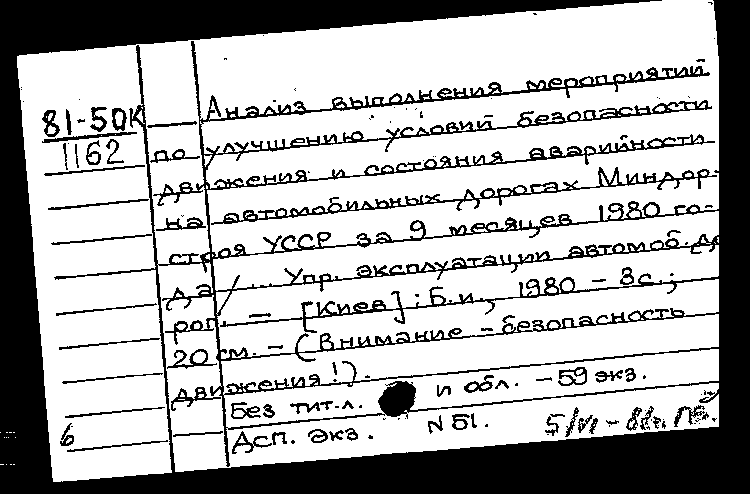 81-50К
1162
Анализ выполнения мероприятий
по улучшению условий безопасности
движения и состояния аварийности
на автомобильных дорогах Миндор-
строя УССР за 9 месяцев 1980 го-
да / ... Упр. эксплуатации автомоб. до
рог. — [Киев] : Б.и., 1980 - 3с.;
20 см. - (Внимание - безопасность
движения!).
Без тит. л. и обл. - 59 экз.
6
Дсп. экз. N 51.
5/VI - 81г.